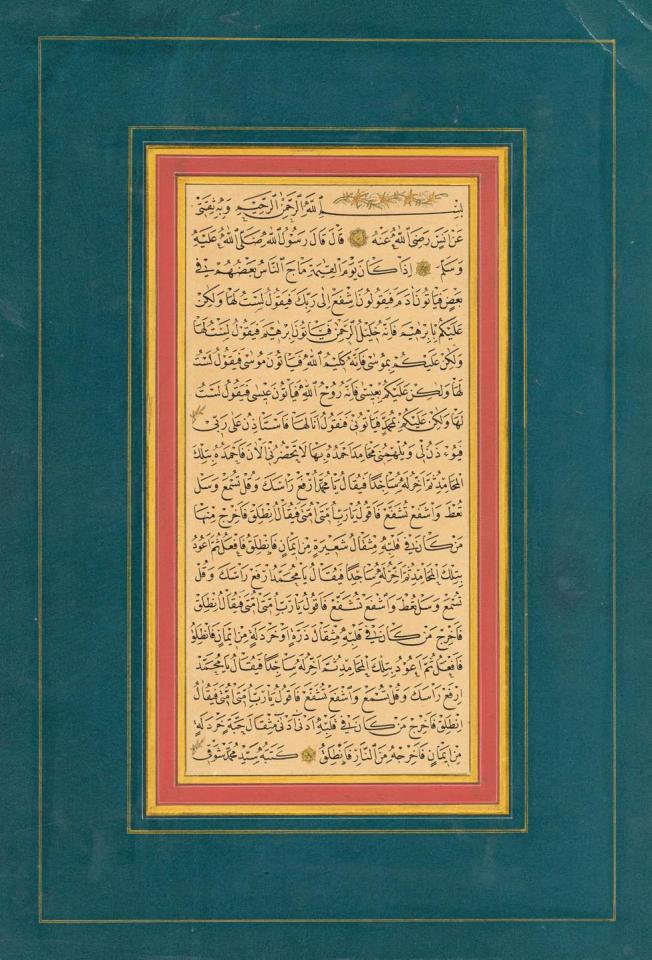 بِسْمِ اللّٰهِ الرَّحْمٰنِ الرَّحِيمِ وَبِهِ ثِقَتِي
عَنْ اَنَسٍ رَضِيَ اللّٰهُ عَنْهُ قَالَ قَالَ رَسُولُ اللّٰهِ صَلَّى اللّٰهُ عَلَيْهِ
وَسَلَّمَ اِذَا كَانَ يَوْمُ الْقِيٰمَةِ مَاجَ النَّاسُ بَعْضُهُمْ فِي
بَعْضٍ فَيَاْتُونَ اٰدَمَ فَيَقُولُونَ اشْفَعْ اِلٰى رَبِّكَ فَيَقُولُ لَسْتُ لَهَا وَلٰكِنْ
عَلَيْكُمْ بِاِبْرٰهِيمَ فَاِنَّهُ خَلِيلُ الرَّحْمٰنِ فَيَاْتُونَ اِبْرٰهِيمَ فَيَقُولُ لَسْتُ لَهَا
وَلٰكِنْ عَلَيْكُمْ بِمُوسٰى فَاِنَّهُ كَلِيمُ اللّٰهِ فَيَاْتُونَ مُوسٰى فَيَقُولُ لَسْتُ
لَهَا وَلٰكِنْ عَلَيْكُمْ بِعِيسٰى فَاِنَّهُ رُوحُ اللّٰهِ فَيَاْتُونَ عِيسٰى فَيَقُولُ لَسْتُ
لَهَا وَلٰكِنْ عَلَيْكُمْ بِمُحَمَّدٍ فَيَاْتُونِي فَيَقُولُ اَنَا لَهَا فَاَسْتَاْذِنُ عَلٰى رَبِّي
فَيُؤْذَنُ لِي وَيُلْهِمُنِي مَحَامِدَ اَحْمَدُهُ بِهَا لَا تَحْضُرُنِي الْاٰنَ فَاَحْمَدُهُ بِتِلْكَ
الْمَحَامِدِ ثُمَّ اَخِرُّ لَهُ سَاجِدًا فَيُقَالُ يَا مُحَمَّدُ ارْفَعْ رَاْسَكَ وَقُلْ تُسْمَعْ وَسَلْ
تُعْطَ وَاشْفَعْ تُشَفَّعْ فَاَقُولُ يَا رَبِّ اُمَّتِي اُمَّتِي فَيُقَالُ انْطَلِقْ فَاَخْرِجْ مِنْهَا
مَنْ كَانَ فِي قَلْبِهِ مِثْقَالُ شَعِيرَةٍ مِنْ اِيمَانٍ فَاَنْطَلِقُ فَاَفْعَلُ ثُمَّ اَعُودُ
بِتِلْكَ الْمَحَامِدِ ثُمَّ اَخِرُّ لَهُ سَاجِدًا فَيُقَالُ يَا مُحَمَّدُ ارْفَعْ رَاْسَكَ وَقُلْ
تُسْمَعْ وَسَلْ تُعْطَ وَاشْفَعْ تُشَفَّعْ فَاَقُولُ يَا رَبِّ اُمَّتِي اُمَّتِي فَيُقَالُ انْطَلِقْ
فَاَخْرِجْ مَنْ كَانَ فِي قَلْبِهِ مِثْقَالُ ذَرَّةٍ اَوْ خَرْدَلَةٍ مِنْ اِيمَانٍ فَاَنْطَلِقُ
فَاَفْعَلُ ثُمَّ اَعُودُ بِتِلْكَ الْمَحَامِدِ ثُمَّ اَخِرُّ لَهُ سَاجِدًا فَيُقَالُ يَا مُحَمَّدُ
ارْفَعْ رَاْسَكَ وَقُلْ تُسْمَعْ وَاشْفَعْ تُشَفَّعْ فَاَقُولُ يَا رَبِّ اُمَّتِي اُمَّتِي فَيُقَالُ
انْطَلِقْ فَاَخْرِجْ مَنْ كَانَ فِي قَلْبِهِ اَدْنٰى اَدْنٰى مِثْقَالِ حَبَّةِ خَرْدَلَةٍ
مِنْ اِيمَانٍ فَاَخْرِجْهُ مِنَ النَّارِ فَاَنْطَلِقُ كَتَبَهُ سَيِّدْ مُحَمَّدْ شَوْقِي